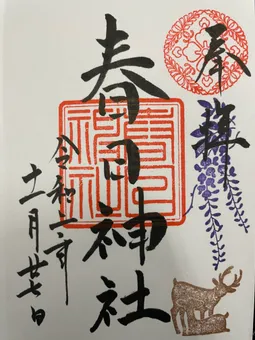 奉拝
春日神社
春日
神社
令和二年
十一月廿七日